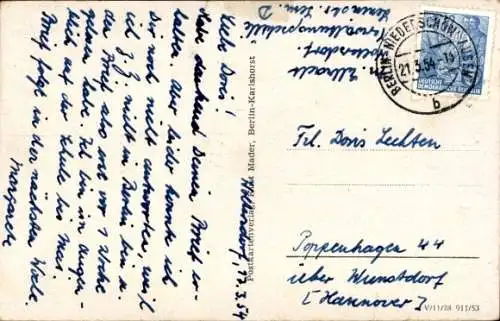 Woltersdorf, 17.3.54
Liebe Doris!
Habe dankend Deinen Brief er-
halten. Aber leider konnte ich
Dir noch nicht antworten, weil
ich z. Z. nicht in Berlin bin u.
den Brief also erst vor 1 Woche
gelesen habe. Ich bin im Augen-
blick auf der Schule bis Mai.
Brief folgt in der nächsten Woche.
Margarete
Postkartenverlag Felix Mader, Berlin-Karlshorst
Woltersdorf
Verwaltungsschule
BERLIN-NIEDERSCHÖNHAUSEN
21.3.54
b
DEUTSCHE
DEMOKRATISCHE REPUBLIK
Frl. Doris Lechten
Poggenhagen 44
über Wunstdorf
[Hannover]
V/11/28 911/53